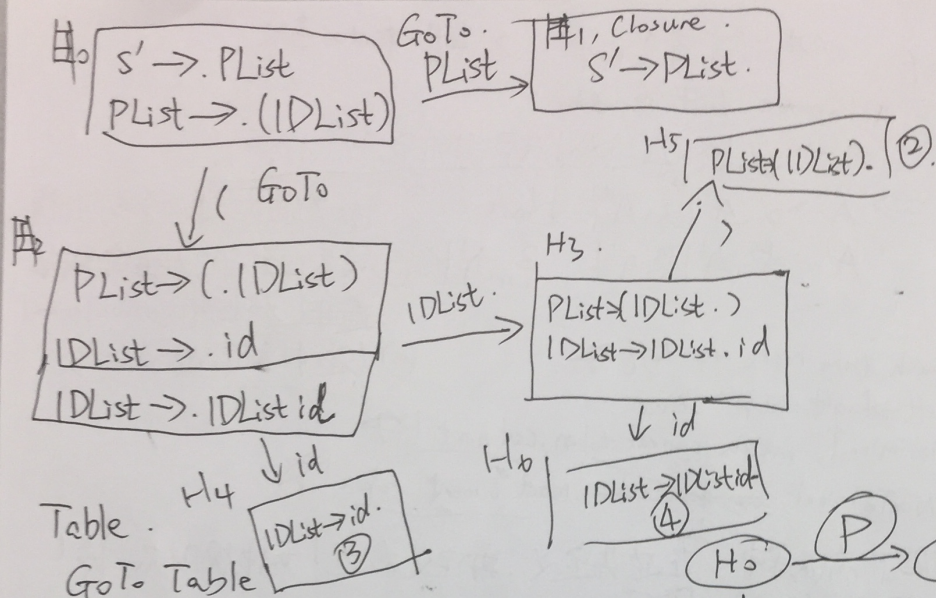 H0
S' → . PList
PList → . (IDList)
GoTo.
PList
H1, Closure.
S' → PList.
( GoTo
H5
PList→(IDList). ②
)
H2
PList → (. IDList)
IDList → . id
IDList → . IDList id
IDList.
H3.
PList→(IDList . )
IDList→IDList . id
id
H4
IDList→id.
③
id
H6
IDList→IDList id.
④
Table.
GoTo Table
H0
P